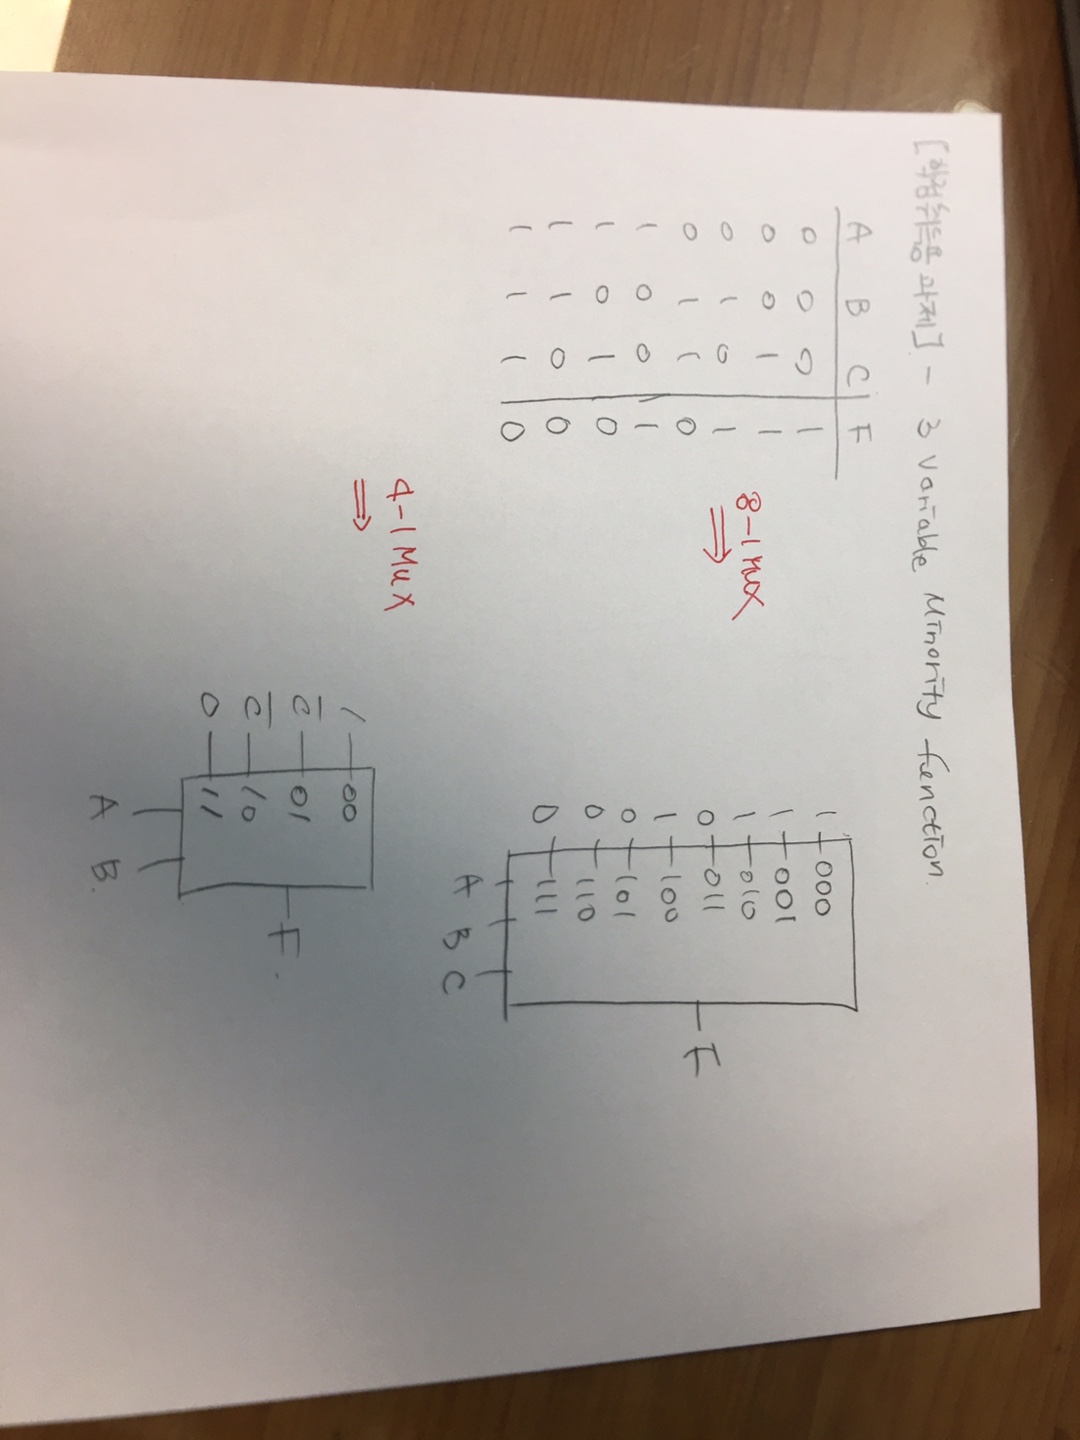 [학정워드응 과제] - 3 variable Minority function.
A B C F
0 0 0 1
0 0 1 1
0 1 0 1
0 1 1 0
1 0 0 1
1 0 1 0
1 1 0 0
1 1 1 0
8-1 MUX
⇒
1 000
1 001
1 010
0 011
1 100
0 101
0 110
0 111
A B C
F
4-1 MUX
⇒
1 00
C̅ 01
C̅ 10
0 11
A B.
F.